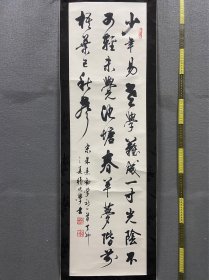 少年易老學難成一寸光陰不
可輕未覺池塘春草夢階前
梧葉已秋聲
宋朱熹勸學詩一首丁卯
之夏